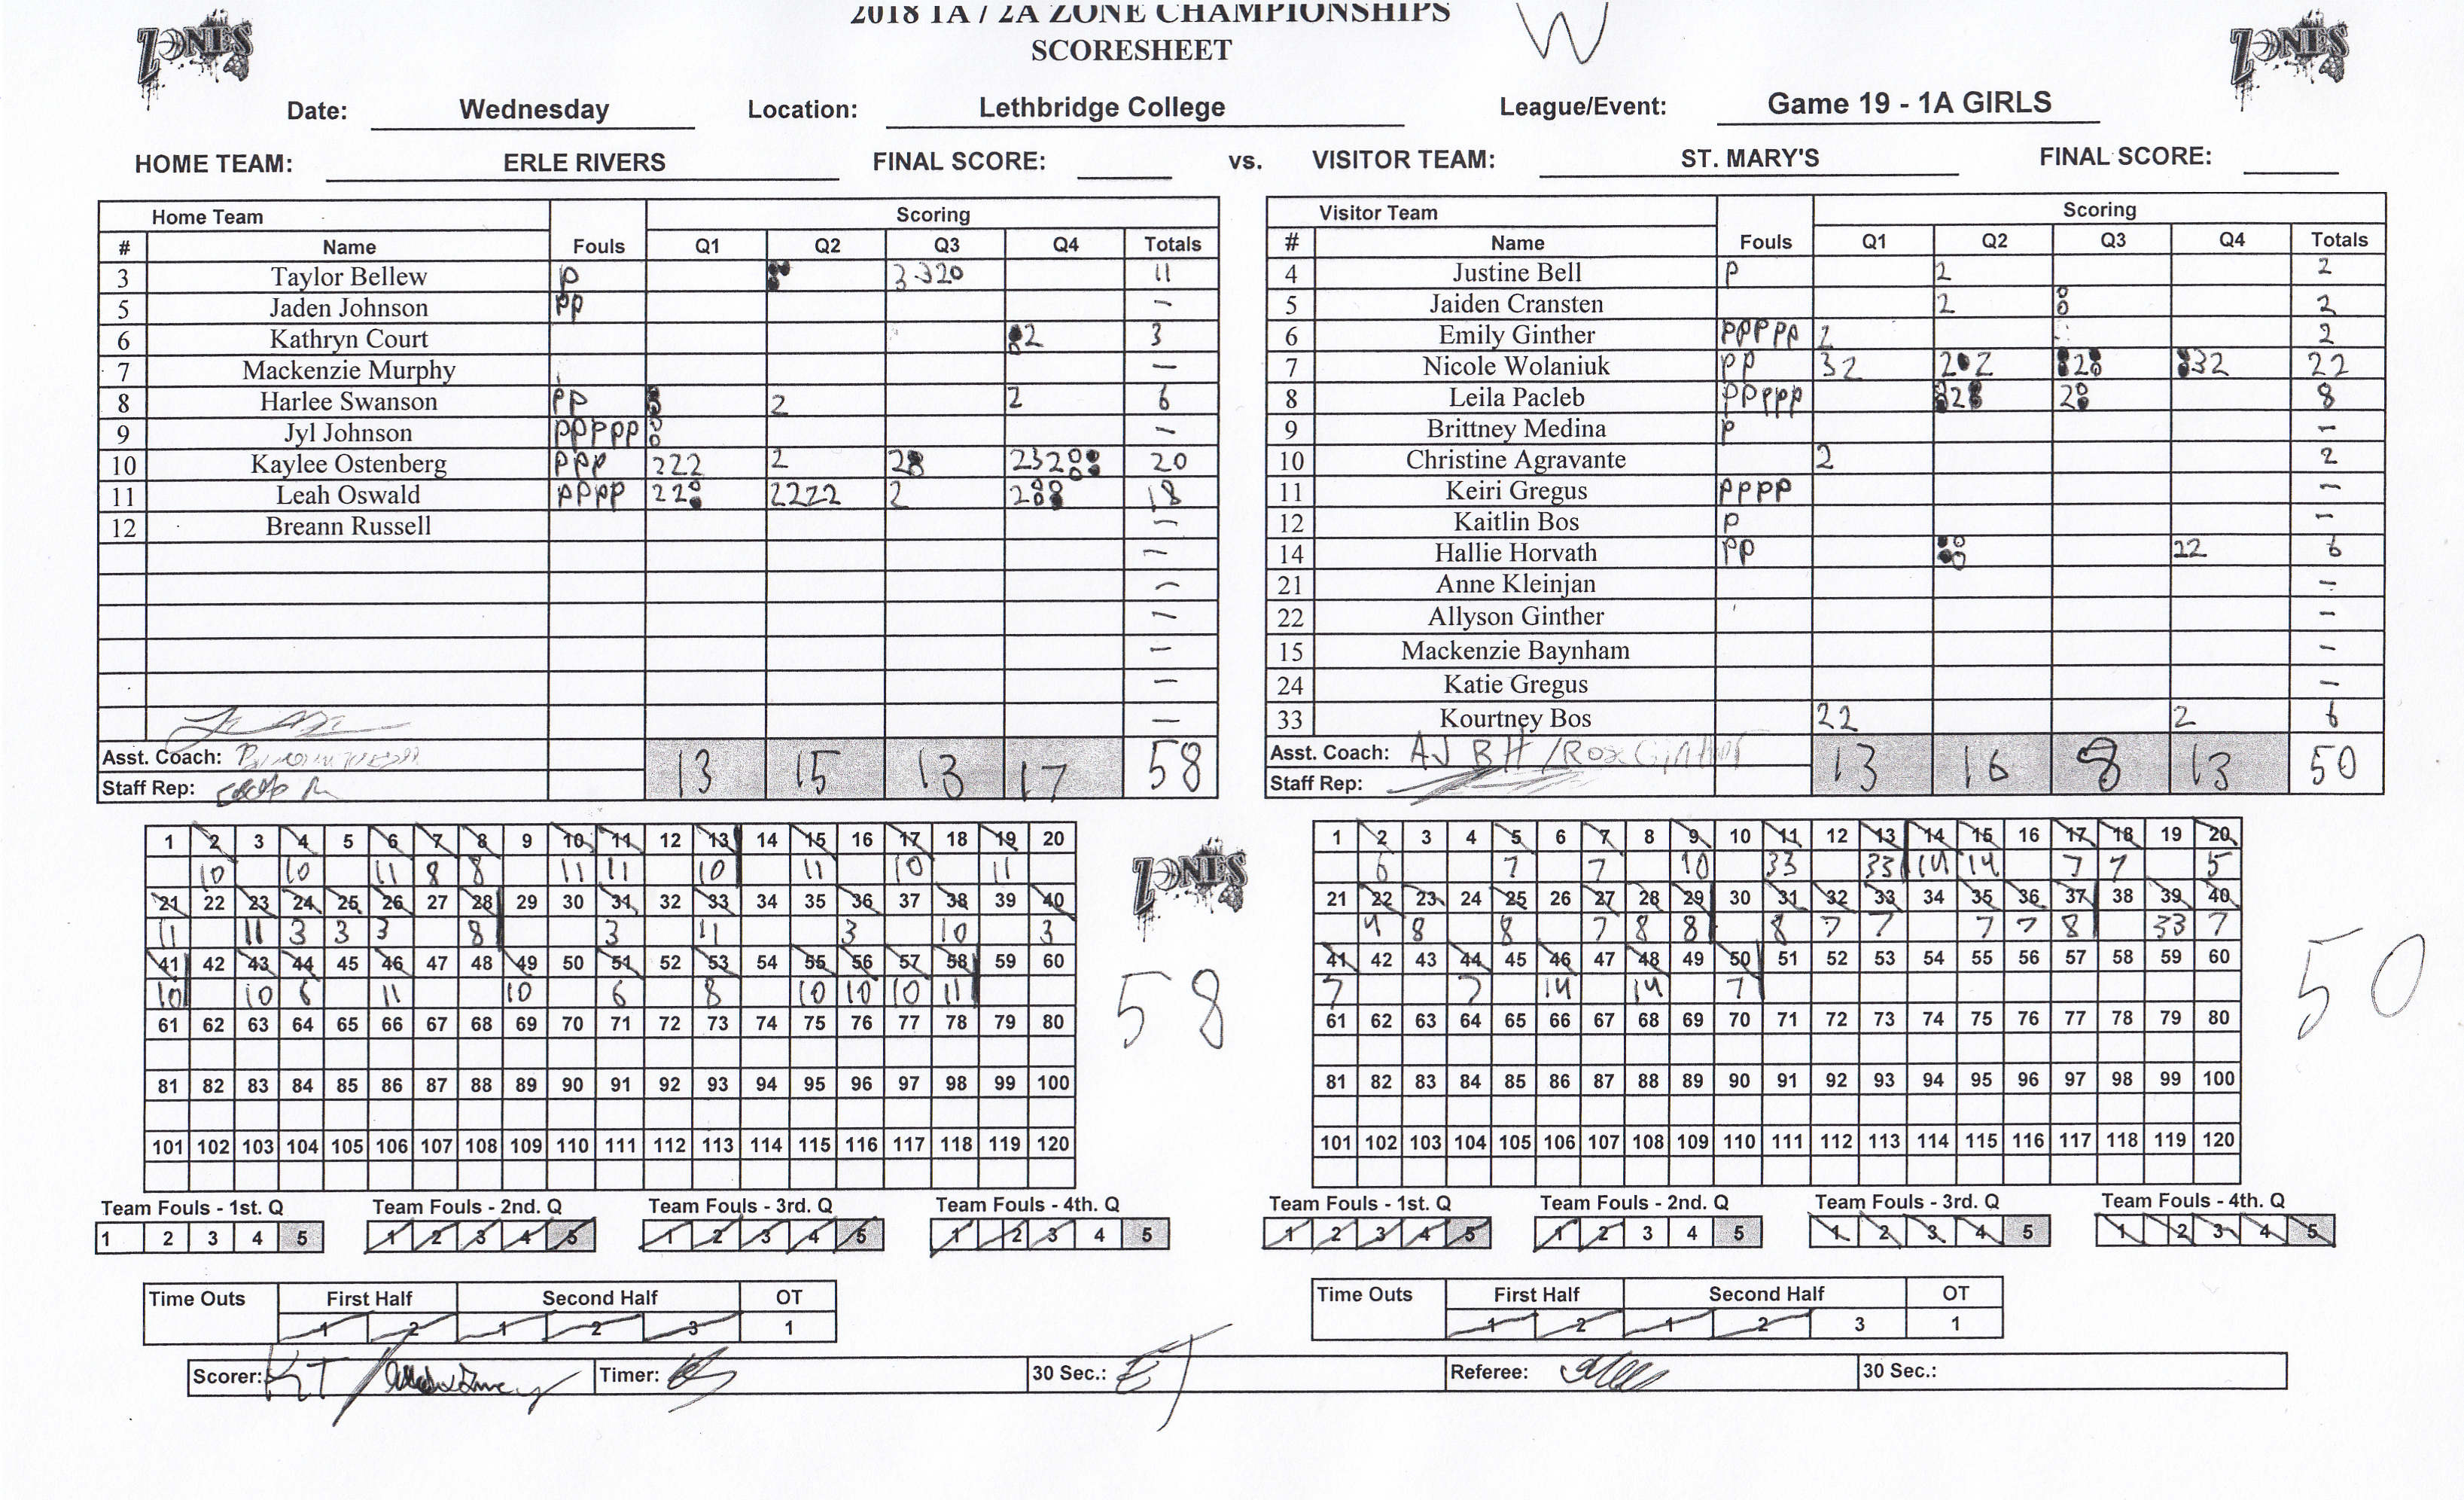 2018 1A / 2A ZONE CHAMPIONSHIPS
SCORESHEET
W
ZONES
ZONES
Date: Wednesday Location: Lethbridge College League/Event: Game 19 - 1A GIRLS
HOME TEAM: ERLE RIVERS FINAL SCORE: vs. VISITOR TEAM: ST. MARY'S FINAL SCORE:
Home Team Scoring
# Name Fouls Q1 Q2 Q3 Q4 Totals
3 Taylor Bellew P 3 3 2 0 11
5 Jaden Johnson PP —
6 Kathryn Court 2 3
7 Mackenzie Murphy —
8 Harlee Swanson PP 2 2 6
9 Jyl Johnson PPPPP —
10 Kaylee Ostenberg PPP 222 2 2 232 20
11 Leah Oswald PPPP 22 2222 2 2 18
12 Breann Russell —
—
—
—
—
—
—
Asst. Coach:
Staff Rep:
13 15 13 17 58
Visitor Team Scoring
# Name Fouls Q1 Q2 Q3 Q4 Totals
4 Justine Bell P 2 2
5 Jaiden Cransten 2 2
6 Emily Ginther PPPPP 2 2
7 Nicole Wolaniuk PP 32 2 2 2 32 22
8 Leila Pacleb PPPPP 2 2 8
9 Brittney Medina P —
10 Christine Agravante 2 2
11 Keiri Gregus PPPP —
12 Kaitlin Bos P —
14 Hallie Horvath PP 22 6
21 Anne Kleinjan —
22 Allyson Ginther —
15 Mackenzie Baynham —
24 Katie Gregus —
33 Kourtney Bos 22 2 6
Asst. Coach: AJ BH / Rox Ginther
Staff Rep:
13 16 8 13 50
1 2 3 4 5 6 7 8 9 10 11 12 13 14 15 16 17 18 19 20
10 10 11 8 8 11 11 10 11 10 11
21 22 23 24 25 26 27 28 29 30 31 32 33 34 35 36 37 38 39 40
11 11 3 3 3 8 3 11 3 10 3
41 42 43 44 45 46 47 48 49 50 51 52 53 54 55 56 57 58 59 60
10 10 6 11 10 6 8 10 10 10 11
61 62 63 64 65 66 67 68 69 70 71 72 73 74 75 76 77 78 79 80
81 82 83 84 85 86 87 88 89 90 91 92 93 94 95 96 97 98 99 100
101 102 103 104 105 106 107 108 109 110 111 112 113 114 115 116 117 118 119 120
ZONES
58
1 2 3 4 5 6 7 8 9 10 11 12 13 14 15 16 17 18 19 20
6 7 7 10 33 33 14 14 7 7 5
21 22 23 24 25 26 27 28 29 30 31 32 33 34 35 36 37 38 39 40
4 8 8 7 8 8 8 7 7 7 7 8 33 7
41 42 43 44 45 46 47 48 49 50 51 52 53 54 55 56 57 58 59 60
7 7 14 14 7
61 62 63 64 65 66 67 68 69 70 71 72 73 74 75 76 77 78 79 80
81 82 83 84 85 86 87 88 89 90 91 92 93 94 95 96 97 98 99 100
101 102 103 104 105 106 107 108 109 110 111 112 113 114 115 116 117 118 119 120
50
Team Fouls - 1st. Q Team Fouls - 2nd. Q Team Fouls - 3rd. Q Team Fouls - 4th. Q
1 2 3 4 5 1 2 3 4 5 1 2 3 4 5 1 2 3 4 5
Team Fouls - 1st. Q Team Fouls - 2nd. Q Team Fouls - 3rd. Q Team Fouls - 4th. Q
1 2 3 4 5 1 2 3 4 5 1 2 3 4 5 1 2 3 4 5
Time Outs First Half Second Half OT
1 2 1 2 3 1
Time Outs First Half Second Half OT
1 2 1 2 3 1
Scorer: KT / Timer: 30 Sec.: ET Referee: 30 Sec.: